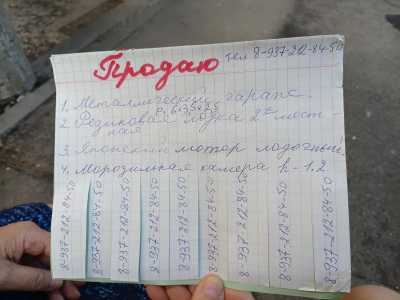 тел 8-937-212-84-50
Продаю
1. Металлический гараж.
р. 6х35х2,5
2. Резиновая лодка 2х мест-
ная
3. Японский мотор лодочный
4. Морозильная камера h-1,2
8-937-212-84-50
8-937-212-84-50
8-937-212-84-50
8-937-212-84-50
8-937-212-84-50
8-937-212-84-50
8-937-212-84-50
8-937-212-84-50